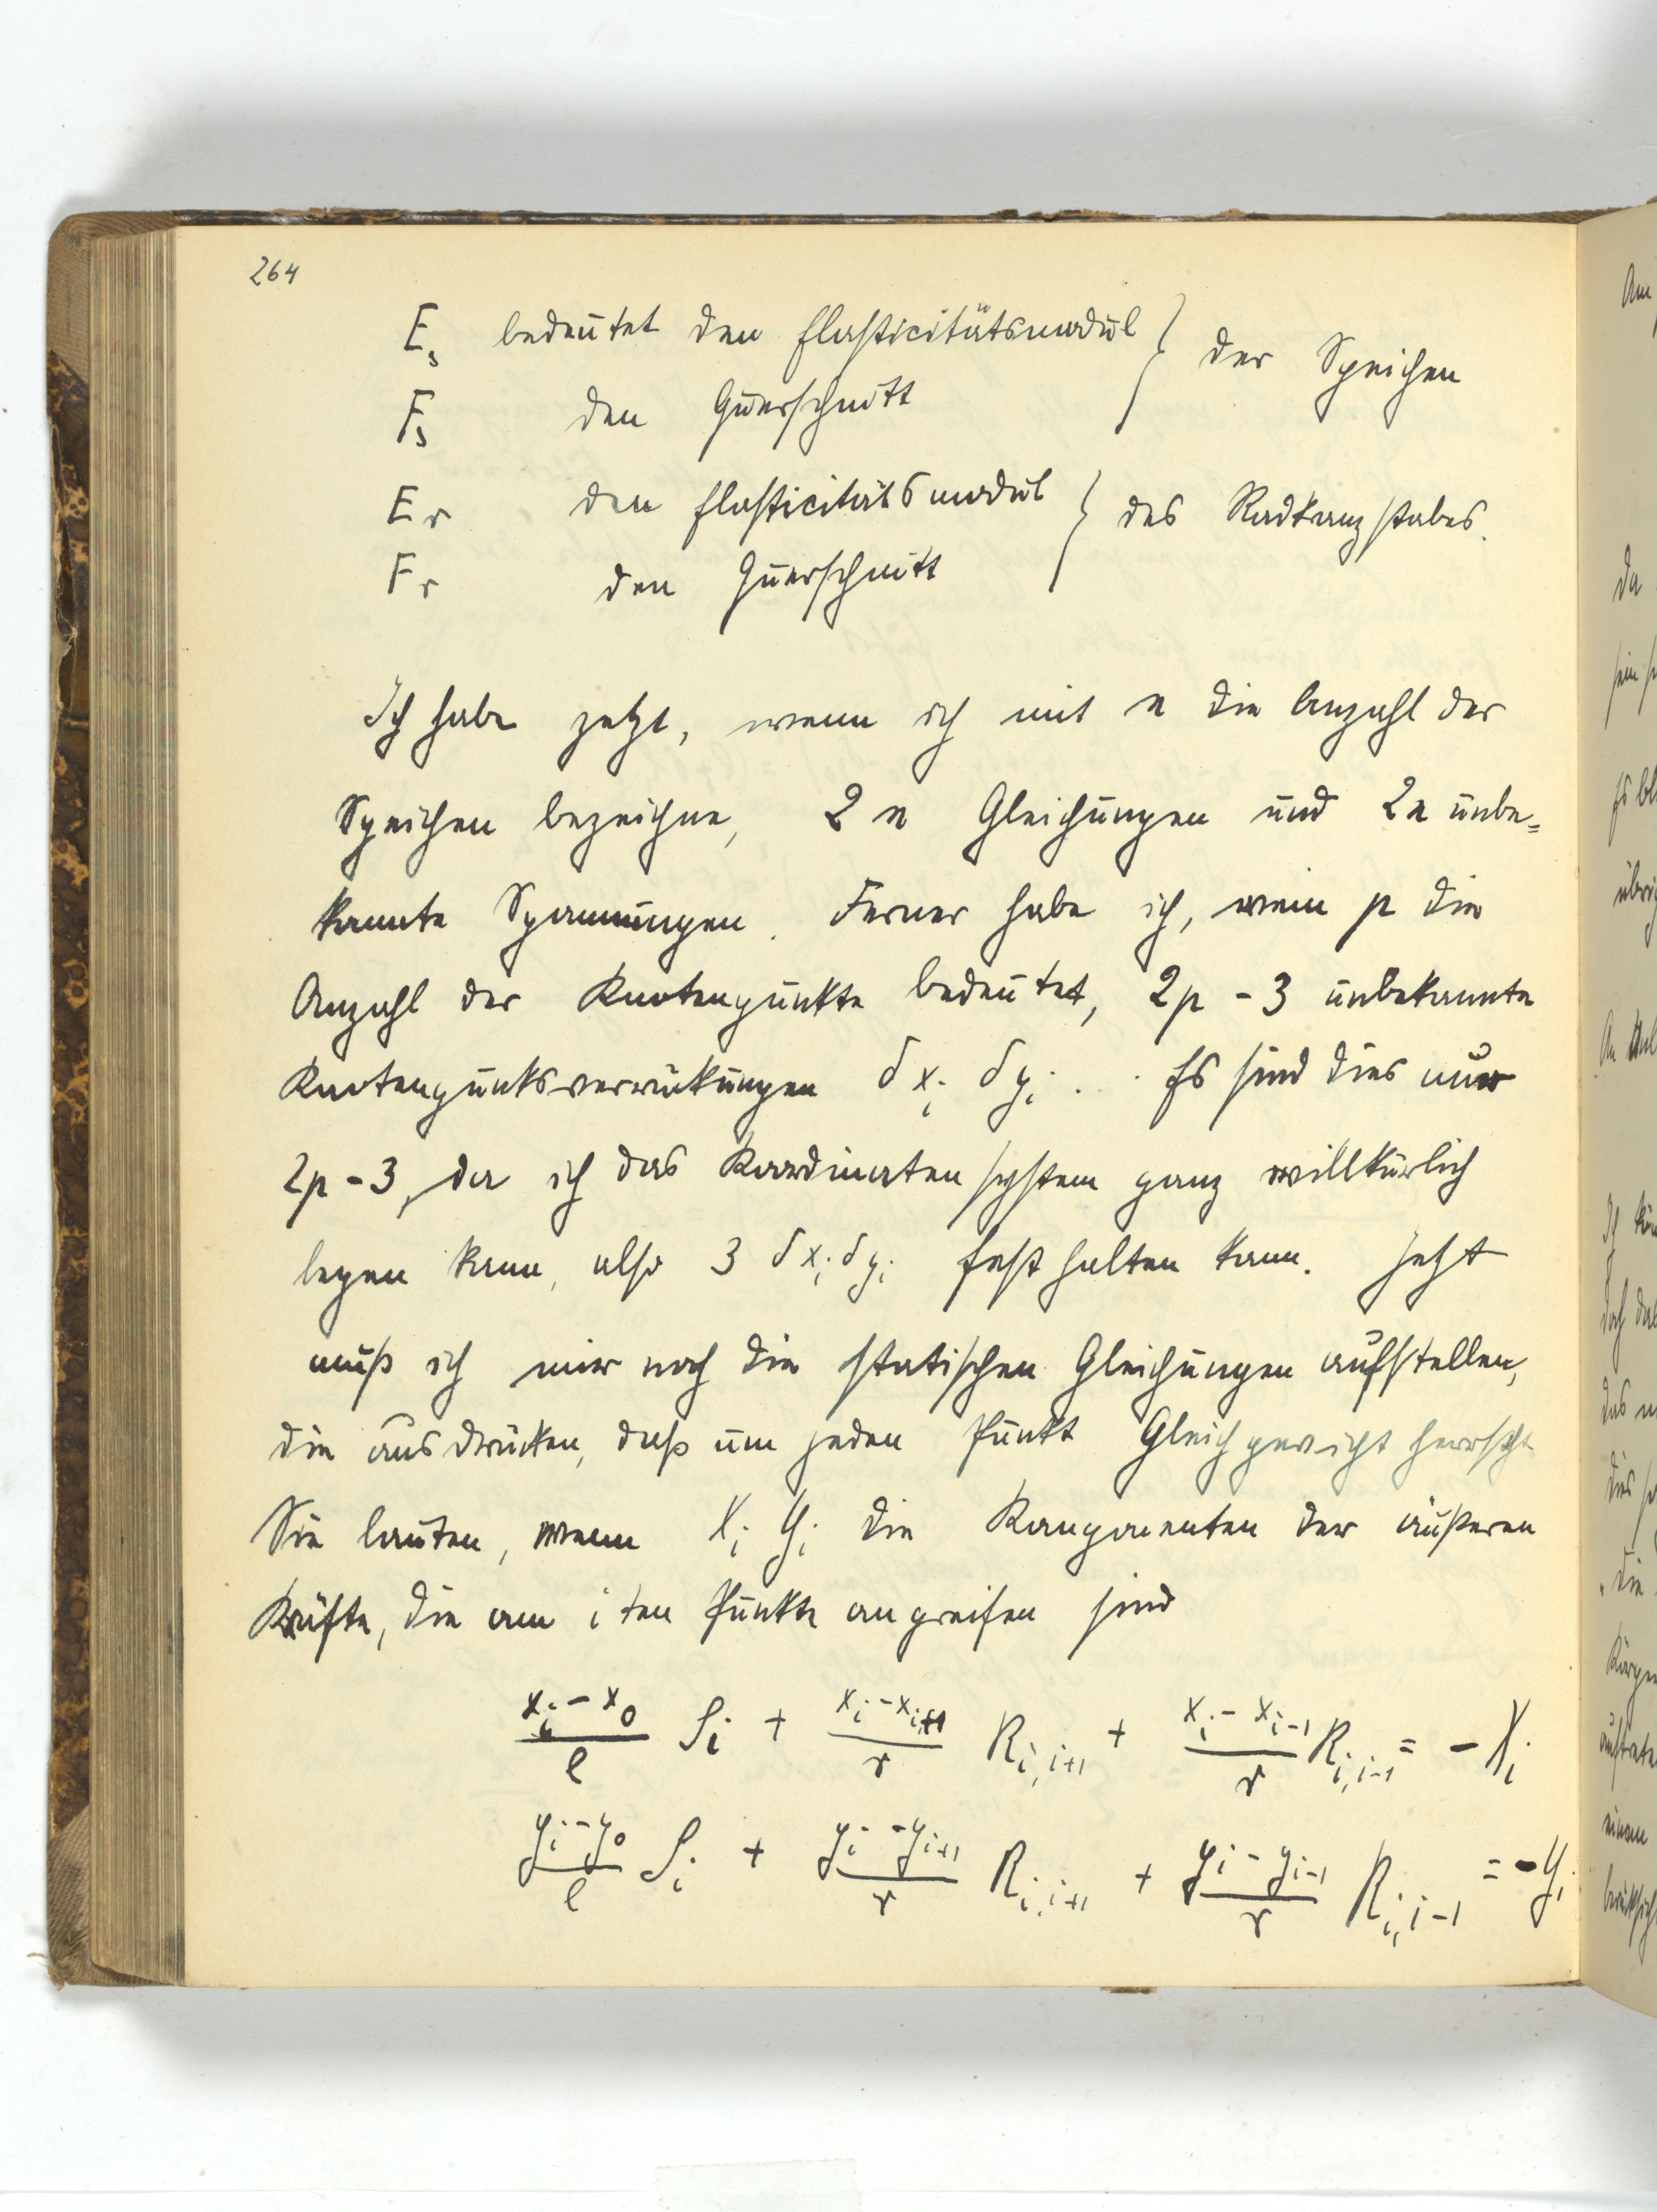 264
E_s bedeutet den Elasticitätsmodul } der Speichen
F_s den Querschnitt
E_r den Elasticitätsmodul } des Radkranzstabes.
F_r den Querschnitt
Ich habe jetzt, wenn ich mit n die Anzahl der
Speichen bezeichne, 2n Gleichungen und 2n unbe=
kannte Spannungen. Ferner habe ich, wenn p die
Anzahl der Knotenpunkte bedeutet, 2p - 3 unbekannte
Knotenpunktsverrückungen δx_i δy_i . . . Es sind dies nur
2p - 3, da ich das Koordinatensystem ganz willkürlich
legen kann, also 3 δx_i δy_i fest halten kann. Jetzt
muß ich mir noch die statischen Gleichungen aufstellen,
die ausdrücken, daß um jeden Punkt Gleichgewicht herrscht
Sie lauten, wenn X_i Y_i die Komponenten der äußeren
Kräfte, die am i ten Punkte angreifen sind
(x_i - x_0)/l S_i + (x_i - x_{i+1})/r R_{i,i+1} + (x_i - x_{i-1})/r R_{i,i-1} = - X_i
(y_i - y_0)/l S_i + (y_i - y_{i+1})/r R_{i,i+1} + (y_i - y_{i-1})/r R_{i,i-1} = - Y_i